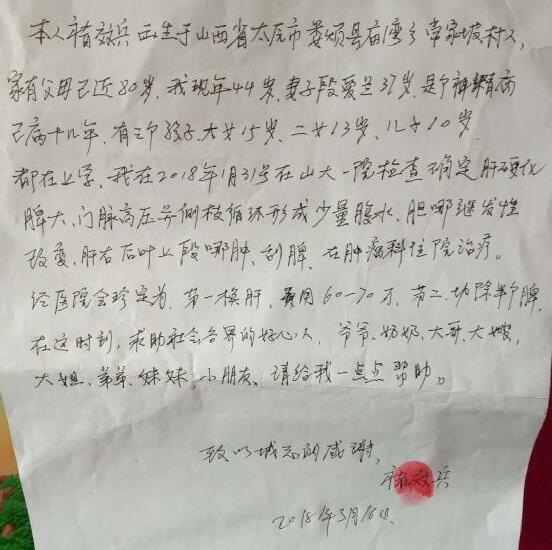 本人褚效兵出生于山西省太原市娄烦县庙湾乡常家坡村人,
家有父母已近80岁,我现年44岁,妻子段爱兰37岁,是个神精病
已病十几年,有三个孩子,大女15岁,二女13岁,儿子10岁,
都在上学,我在2018年1月31号在山大一院检查确定肝硬化
脾大、门脉高压号侧枝循环形成少量腹水,胆哪继发性
改变,肝右后叶上段哪肿、刮脾,在肿瘤科住院治疗。
经医院会珍定为,第一换肝,费用60—70万,第二切除半个脾,
在这时刻,求助社会各界的好心人,爷爷,奶奶,大哥,大嫂,
大姐,弟弟,妹妹,小朋友、请给我一点点帮助。
致以城志的感谢,
褚效兵
2018年3月16日